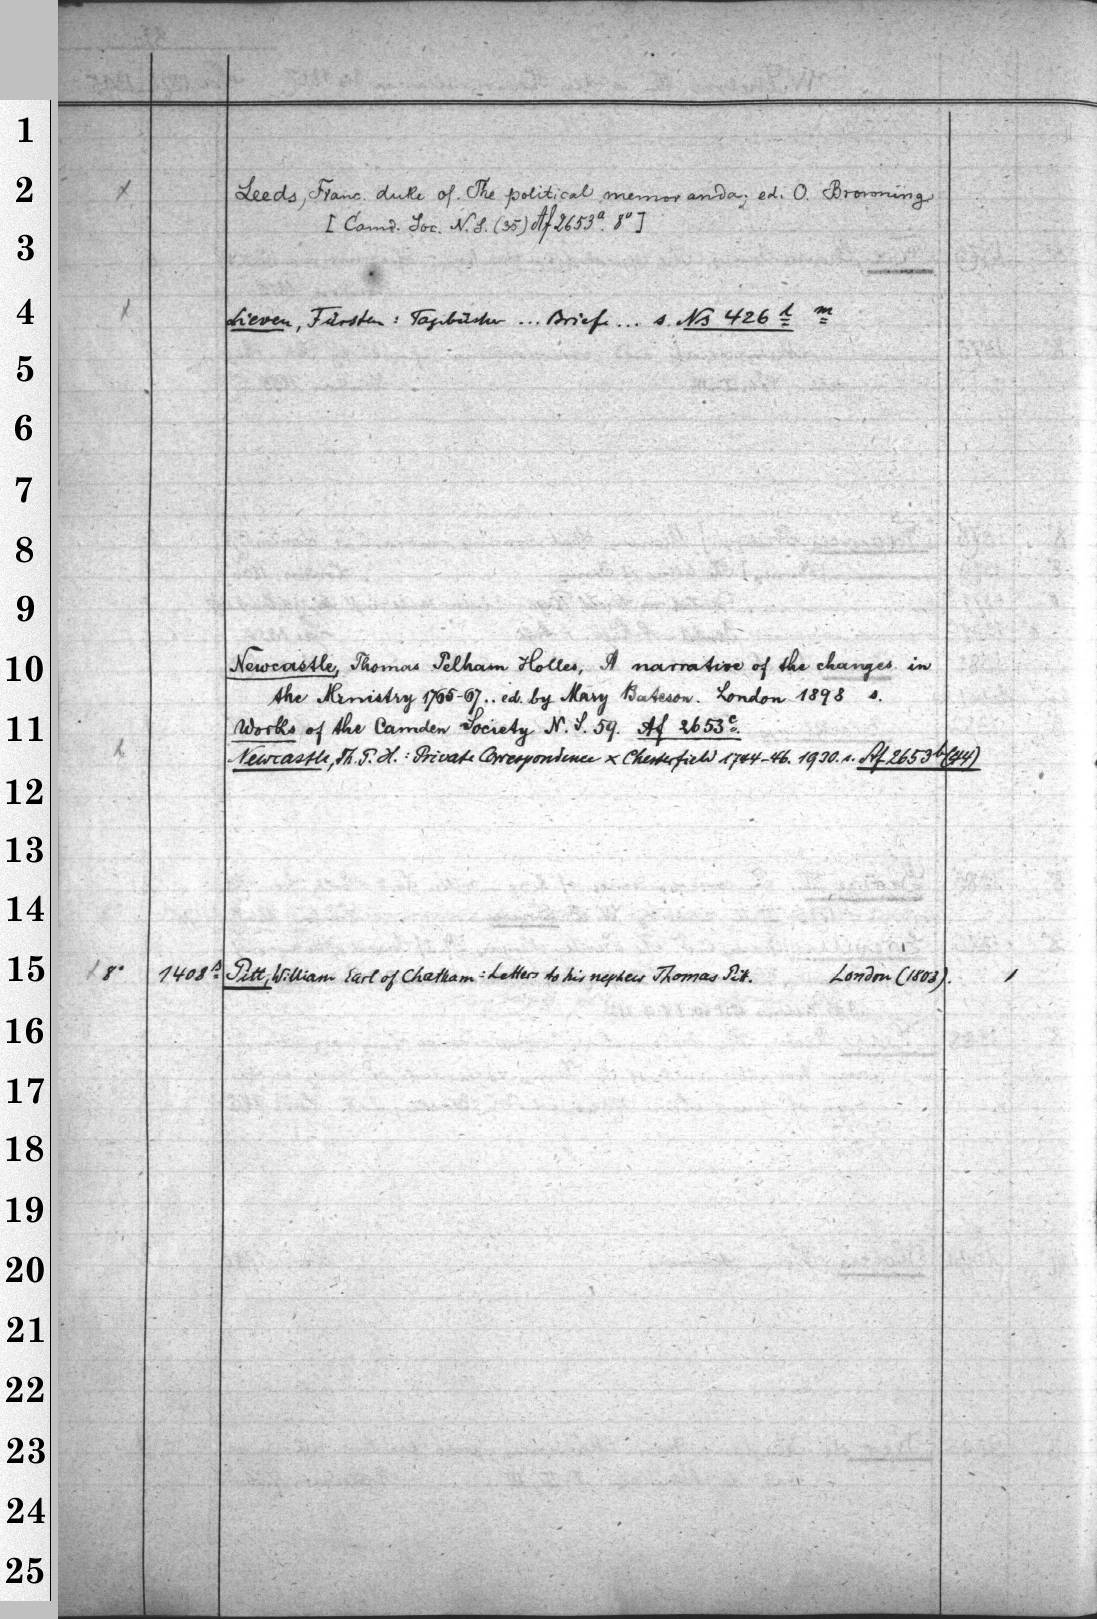 1
2
Leeds, Franc. duke of. The political memoranda; ed. O. Browning
[Camd. Soc. N. S. (35) Af 2653a. 8°]
3
4
Lieven, Fürstin: Tagebücher ... Briefe ... s. Nb 426 l m
5
6
7
8
9
10
Newcastle, Thomas Pelham Holles, A narrative of the changes in
the Ministry 1765-67.. ed. by Mary Bateson. London 1898 s.
11
Works of the Camden Society N. S. 59. Af 2653c.
Newcastle, Th. P. H.: Private Correspondence x Chesterfield 1744-46. 1930. s. Af 2653b (44)
12
13
14
15
8° 1408a Pitt, William Earl of Chatham: Letters to his nephew Thomas Pitt. London (1803). 1
16
17
18
19
20
21
22
23
24
25